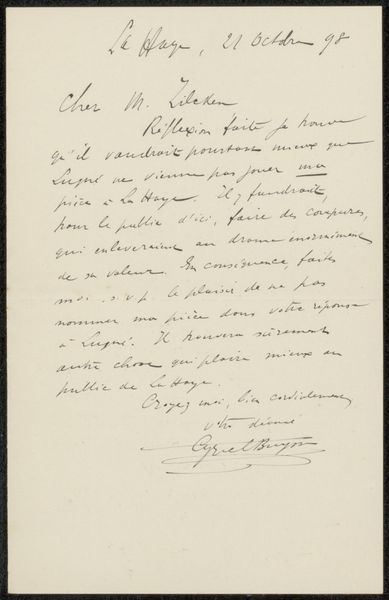 La Haye, 21 Octobre 98
Cher M. Zilcken
Réflexion faite je trouve
qu'il vaudrait pourtant mieux que
Lugné ne vienne pas jouer ma
pièce à La Haye. Il y faudrait,
pour le public d'ici, faire des coupures,
qui enleveraient au drame enormément
de sa valeur. En conséquence, faites
moi s.v.p. le plaisir de ne pas
nommer ma pièce dans votre réponse
à Lugné. Il trouvera sûrement
autre chose qui plaire mieux au
public de La Haye.
Croyez moi, bien cordialement
votre dévoué
Cyriel Buysse